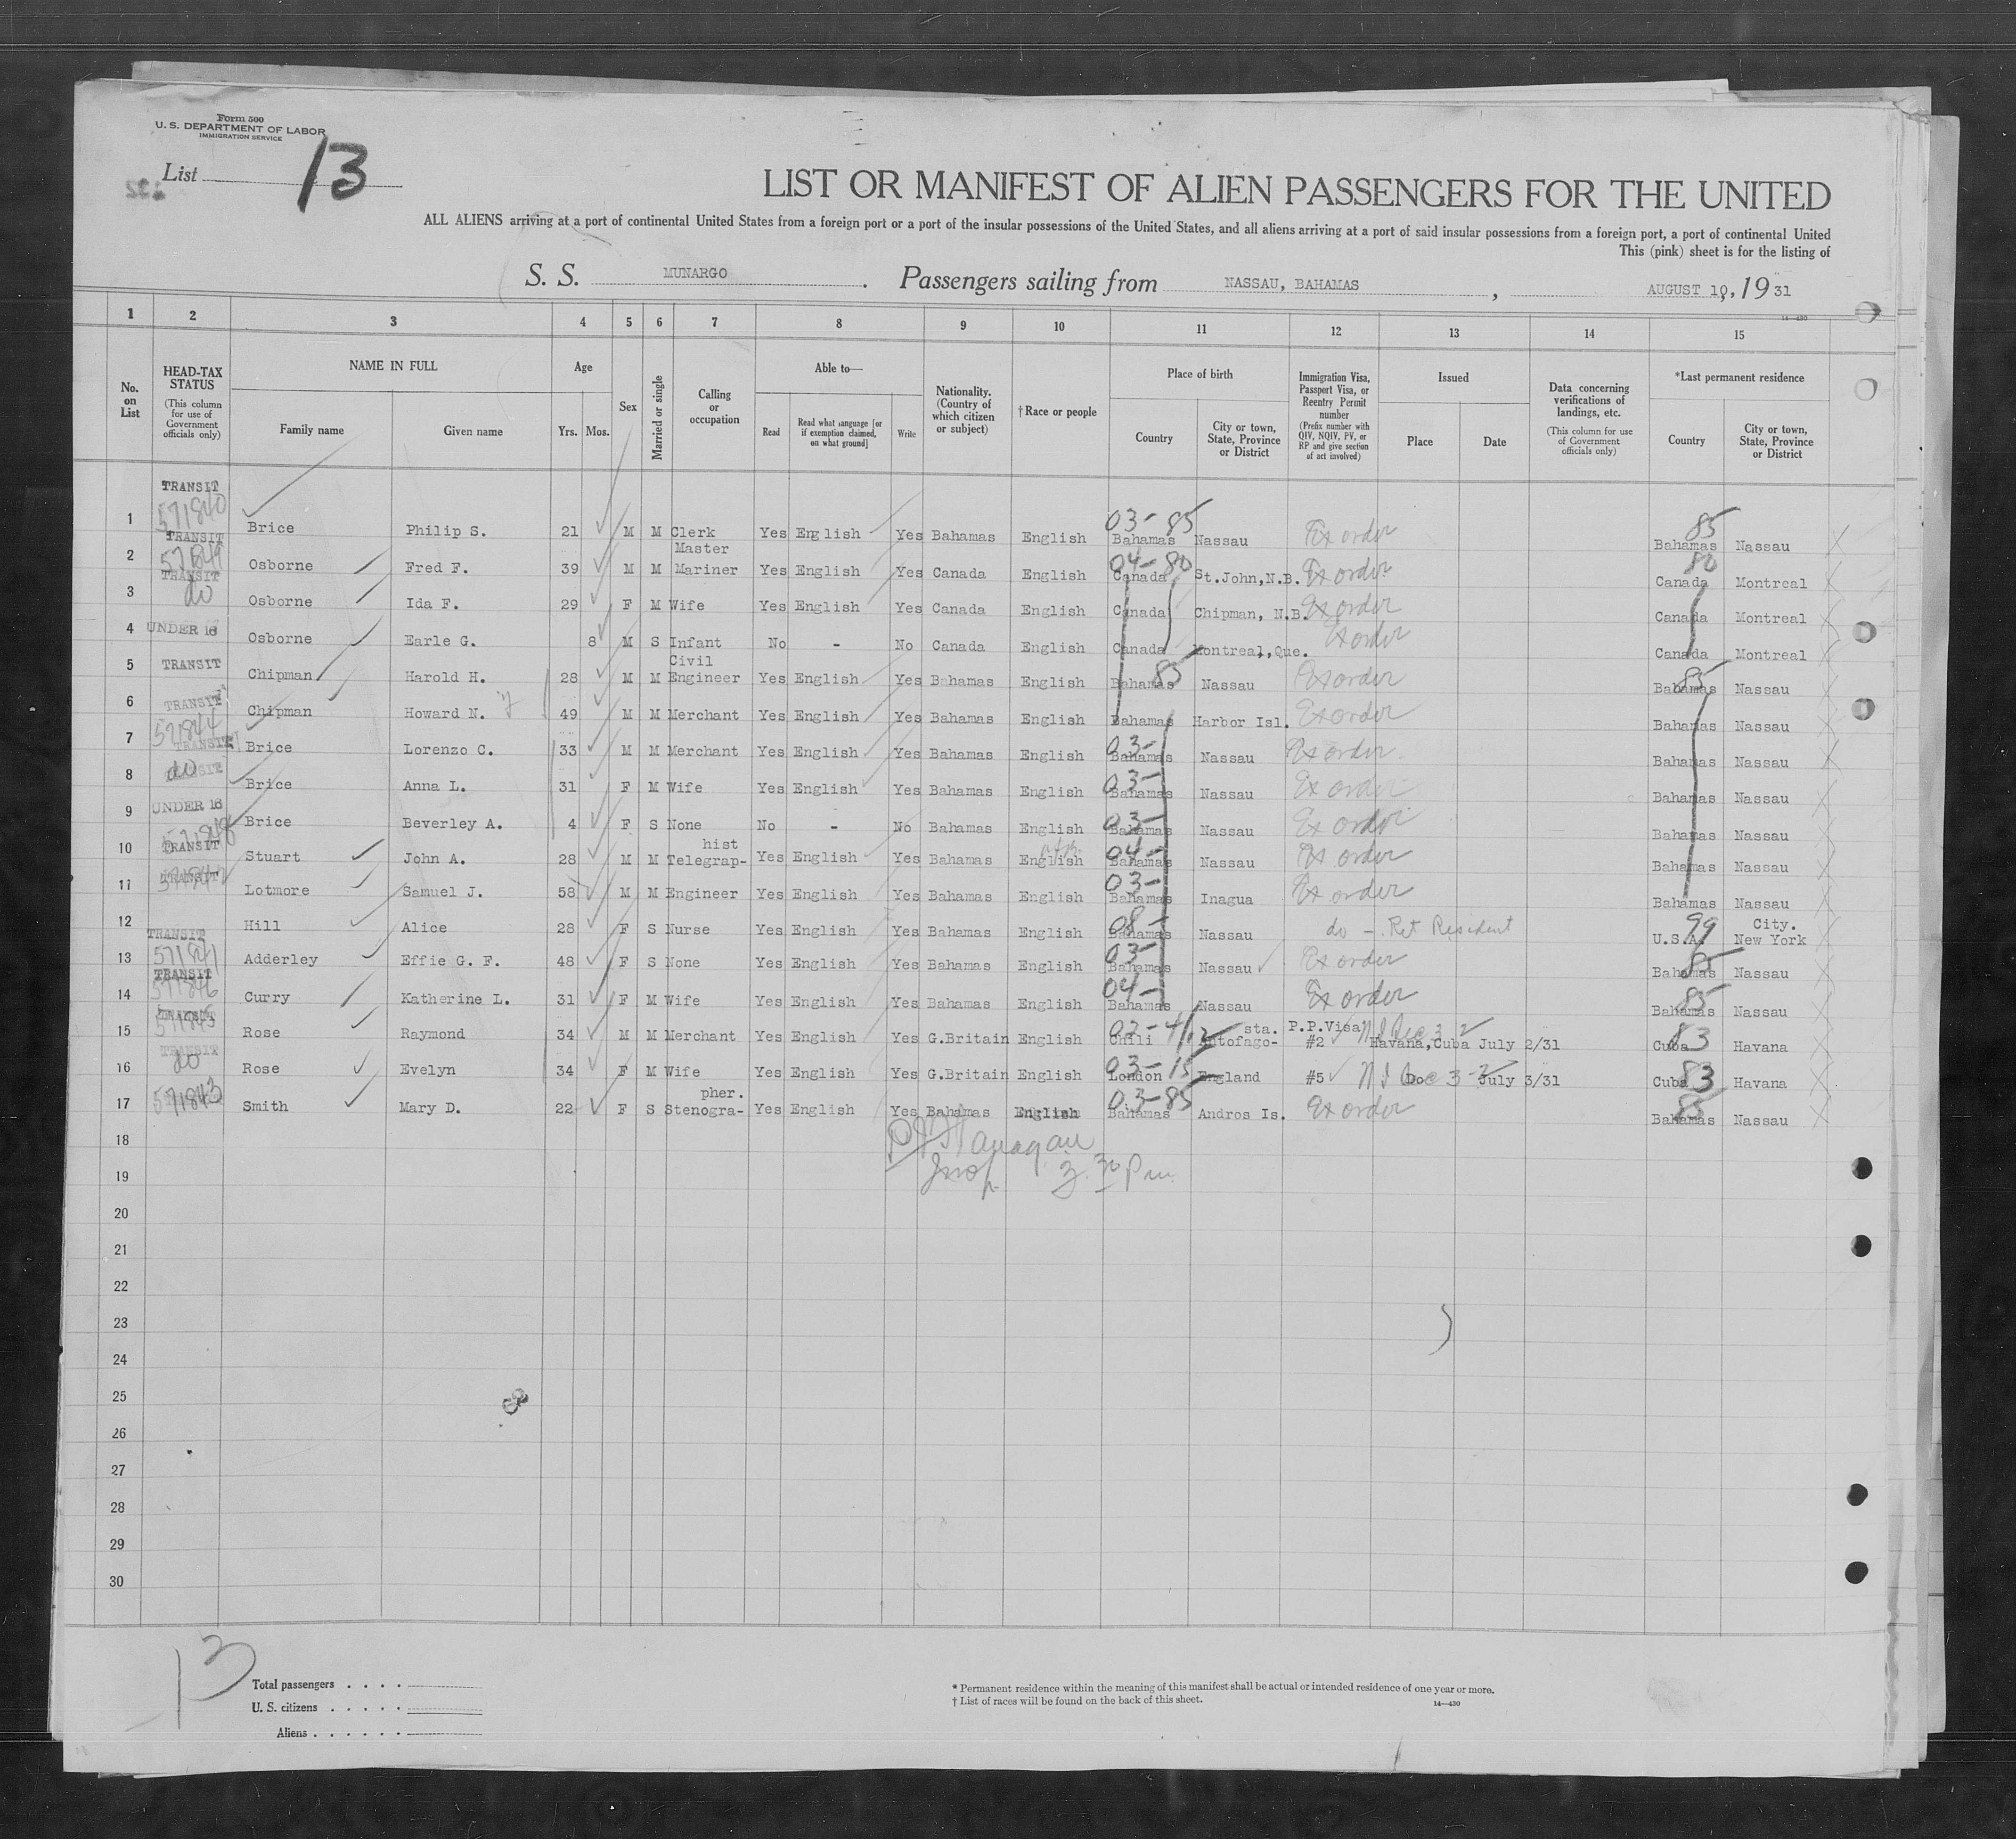 Form 500
U. S. DEPARTMENT OF LABOR
IMMIGRATION SERVICE
List 13
LIST OR MANIFEST OF ALIEN PASSENGERS FOR THE UNITED
ALL ALIENS arriving at a port of continental United States from a foreign port or a port of the insular possessions of the United States, and all aliens arriving at a port of said insular possessions from a foreign port, a port of continental United
This (pink) sheet is for the listing of
S. S. MUNARGO. Passengers sailing from NASSAU, BAHAMAS, AUGUST 10, 1931
14—430
1 2 3 4 5 6 7 8 9 10 11 12 13 14 15
No. on List
HEAD-TAX STATUS (This column for use of Government officials only)
NAME IN FULL Family name Given name
Age Yrs. Mos.
Sex
Married or single
Calling or occupation
Able to— Read Read what language [or if exemption claimed, on what ground] Write
Nationality. (Country of which citizen or subject)
†Race or people
Place of birth Country City or town, State, Province or District
Immigration Visa, Passport Visa, or Reentry Permit number (Prefix number with QIV, NQIV, PV, or RP and give section of act involved)
Issued Place Date
Data concerning verifications of landings, etc. (This column for use of Government officials only)
*Last permanent residence Country City or town, State, Province or District
1 TRANSIT 571840 Brice Philip S. 21 M M Clerk Yes English Yes Bahamas English 03-85 Bahamas Nassau Ex order 85 Bahamas Nassau
2 TRANSIT Osborne Fred F. 39 M M Master Mariner Yes English Yes Canada English 04-80 Canada St.John,N.B. Ex order 80 Canada Montreal
3 TRANSIT do Osborne Ida F. 29 F M Wife Yes English Yes Canada English Canada Chipman, N.B. Ex order Canada Montreal
4 UNDER 16 Osborne Earle G. 8 M S Infant No - No Canada English Canada Montreal,Que. Ex order Canada Montreal
5 TRANSIT Chipman Harold H. 28 M M Civil Engineer Yes English Yes Bahamas English 85 Bahamas Nassau Ex order 85 Bahamas Nassau
6 TRANSIT Chipman Howard N. 49 M M Merchant Yes English Yes Bahamas English Bahamas Harbor Isl. Ex order Bahamas Nassau
7 571844 TRANSIT Brice Lorenzo C. 33 M M Merchant Yes English Yes Bahamas English 03- Bahamas Nassau Ex order Bahamas Nassau
8 do TRANSIT Brice Anna L. 31 F M Wife Yes English Yes Bahamas English 03- Bahamas Nassau Ex order Bahamas Nassau
9 UNDER 16 Brice Beverley A. 4 F S None No - No Bahamas English 03- Bahamas Nassau Ex order Bahamas Nassau
10 TRANSIT Stuart John A. 28 M M Telegrap-hist Yes English Yes Bahamas English 04- Bahamas Nassau Ex order Bahamas Nassau
11 TRANSIT Lotmore Samuel J. 58 M M Engineer Yes English Yes Bahamas English 03- Bahamas Inagua Ex order Bahamas Nassau
12 Hill Alice 28 F S Nurse Yes English Yes Bahamas English 08- Bahamas Nassau do - Ret Resident 99 U.S.A. New York City.
13 TRANSIT 571841 Adderley Effie G. F. 48 F S None Yes English Yes Bahamas English 03- Bahamas Nassau Ex order 85 Bahamas Nassau
14 TRANSIT 571846 Curry Katherine L. 31 F M Wife Yes English Yes Bahamas English 04- Bahamas Nassau Ex order 85 Bahamas Nassau
15 TRANSIT 571845 Rose Raymond 34 M M Merchant Yes English Yes G.Britain English Chili Antofago-sta. P.P.Visa #2 Havana,Cuba July 2/31 83 Cuba Havana
16 TRANSIT do Rose Evelyn 34 F M Wife Yes English Yes G.Britain English 03-15 London England #5 Do July 3/31 83 Cuba Havana
17 571843 Smith Mary D. 22 F S Stenogra-pher. Yes English Yes Bahamas English 03-85 Bahamas Andros Is. Ex order 85 Bahamas Nassau
18
19 Insp. 3.30 Pm
20
21
22
23
24
25
26
27
28
29
30
13
Total passengers
U. S. citizens
Aliens
* Permanent residence within the meaning of this manifest shall be actual or intended residence of one year or more.
† List of races will be found on the back of this sheet.
14—430